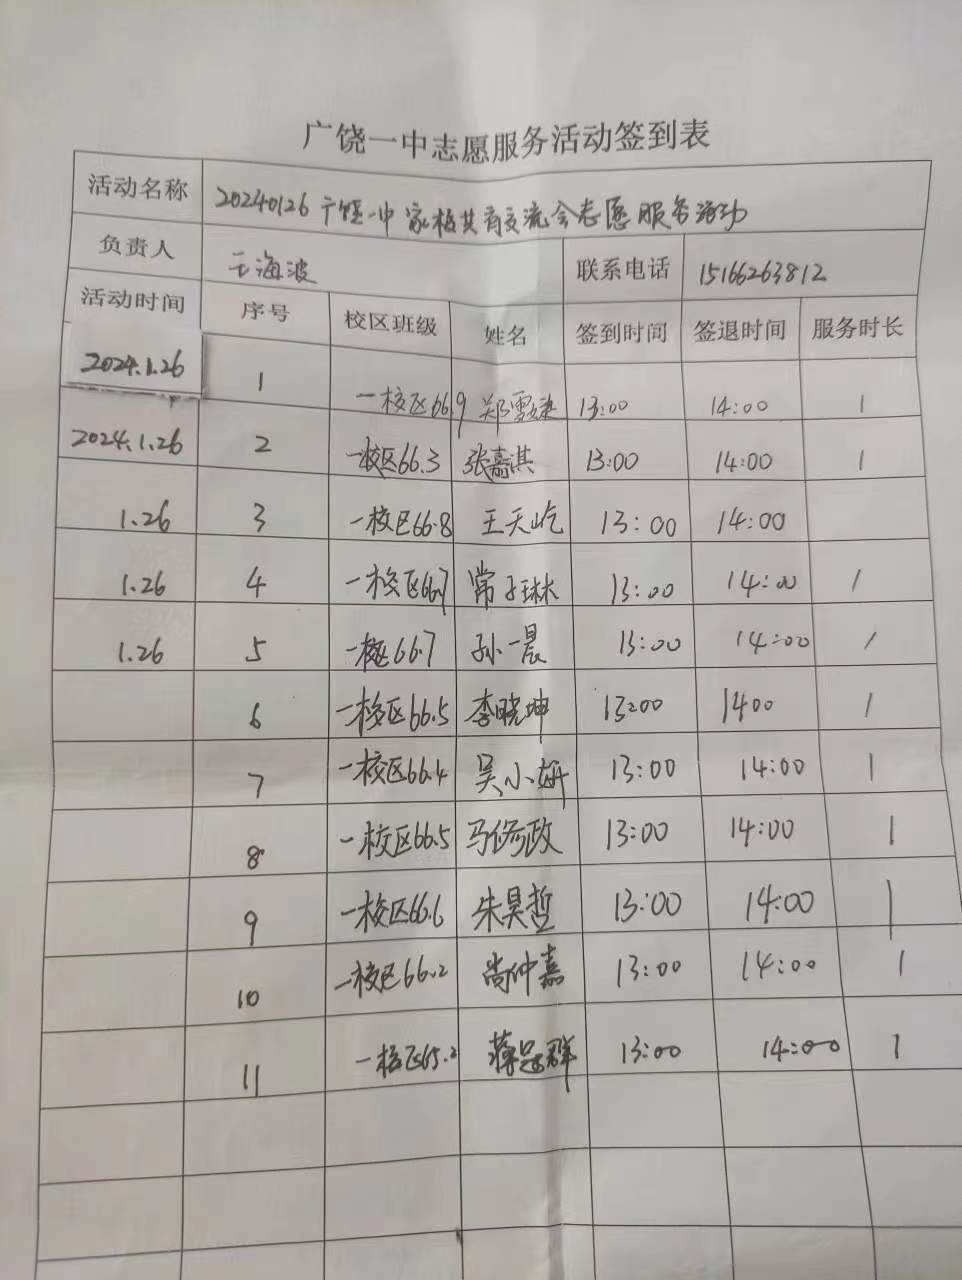 广饶一中志愿服务活动签到表
活动名称 20240126广饶一中家校共育交流会志愿服务活动
负责人 王海波 联系电话 15166263812
活动时间 序号 校区班级 姓名 签到时间 签退时间 服务时长
2024.1.26 1 一校区66.9 郑雪婕 13:00 14:00 1
2024.1.26 2 一校区66.3 张嘉淇 13:00 14:00 1
1.26 3 一校区66.8 王天屹 13:00 14:00
1.26 4 一校区66.7 常子琳 13:00 14:00 1
1.26 5 一校区66.7 孙一晨 13:00 14:00 1
6 一校区66.5 李晓坤 13:00 1400 1
7 一校区66.4 吴小妍 13:00 14:00 1
8 一校区66.5 马修政 13:00 14:00 1
9 一校区66.6 朱昊哲 13:00 14:00 1
10 一校区66.2 尚仲嘉 13:00 14:00 1
11 一校区65.2 蒋 群 13:00 14:00 1